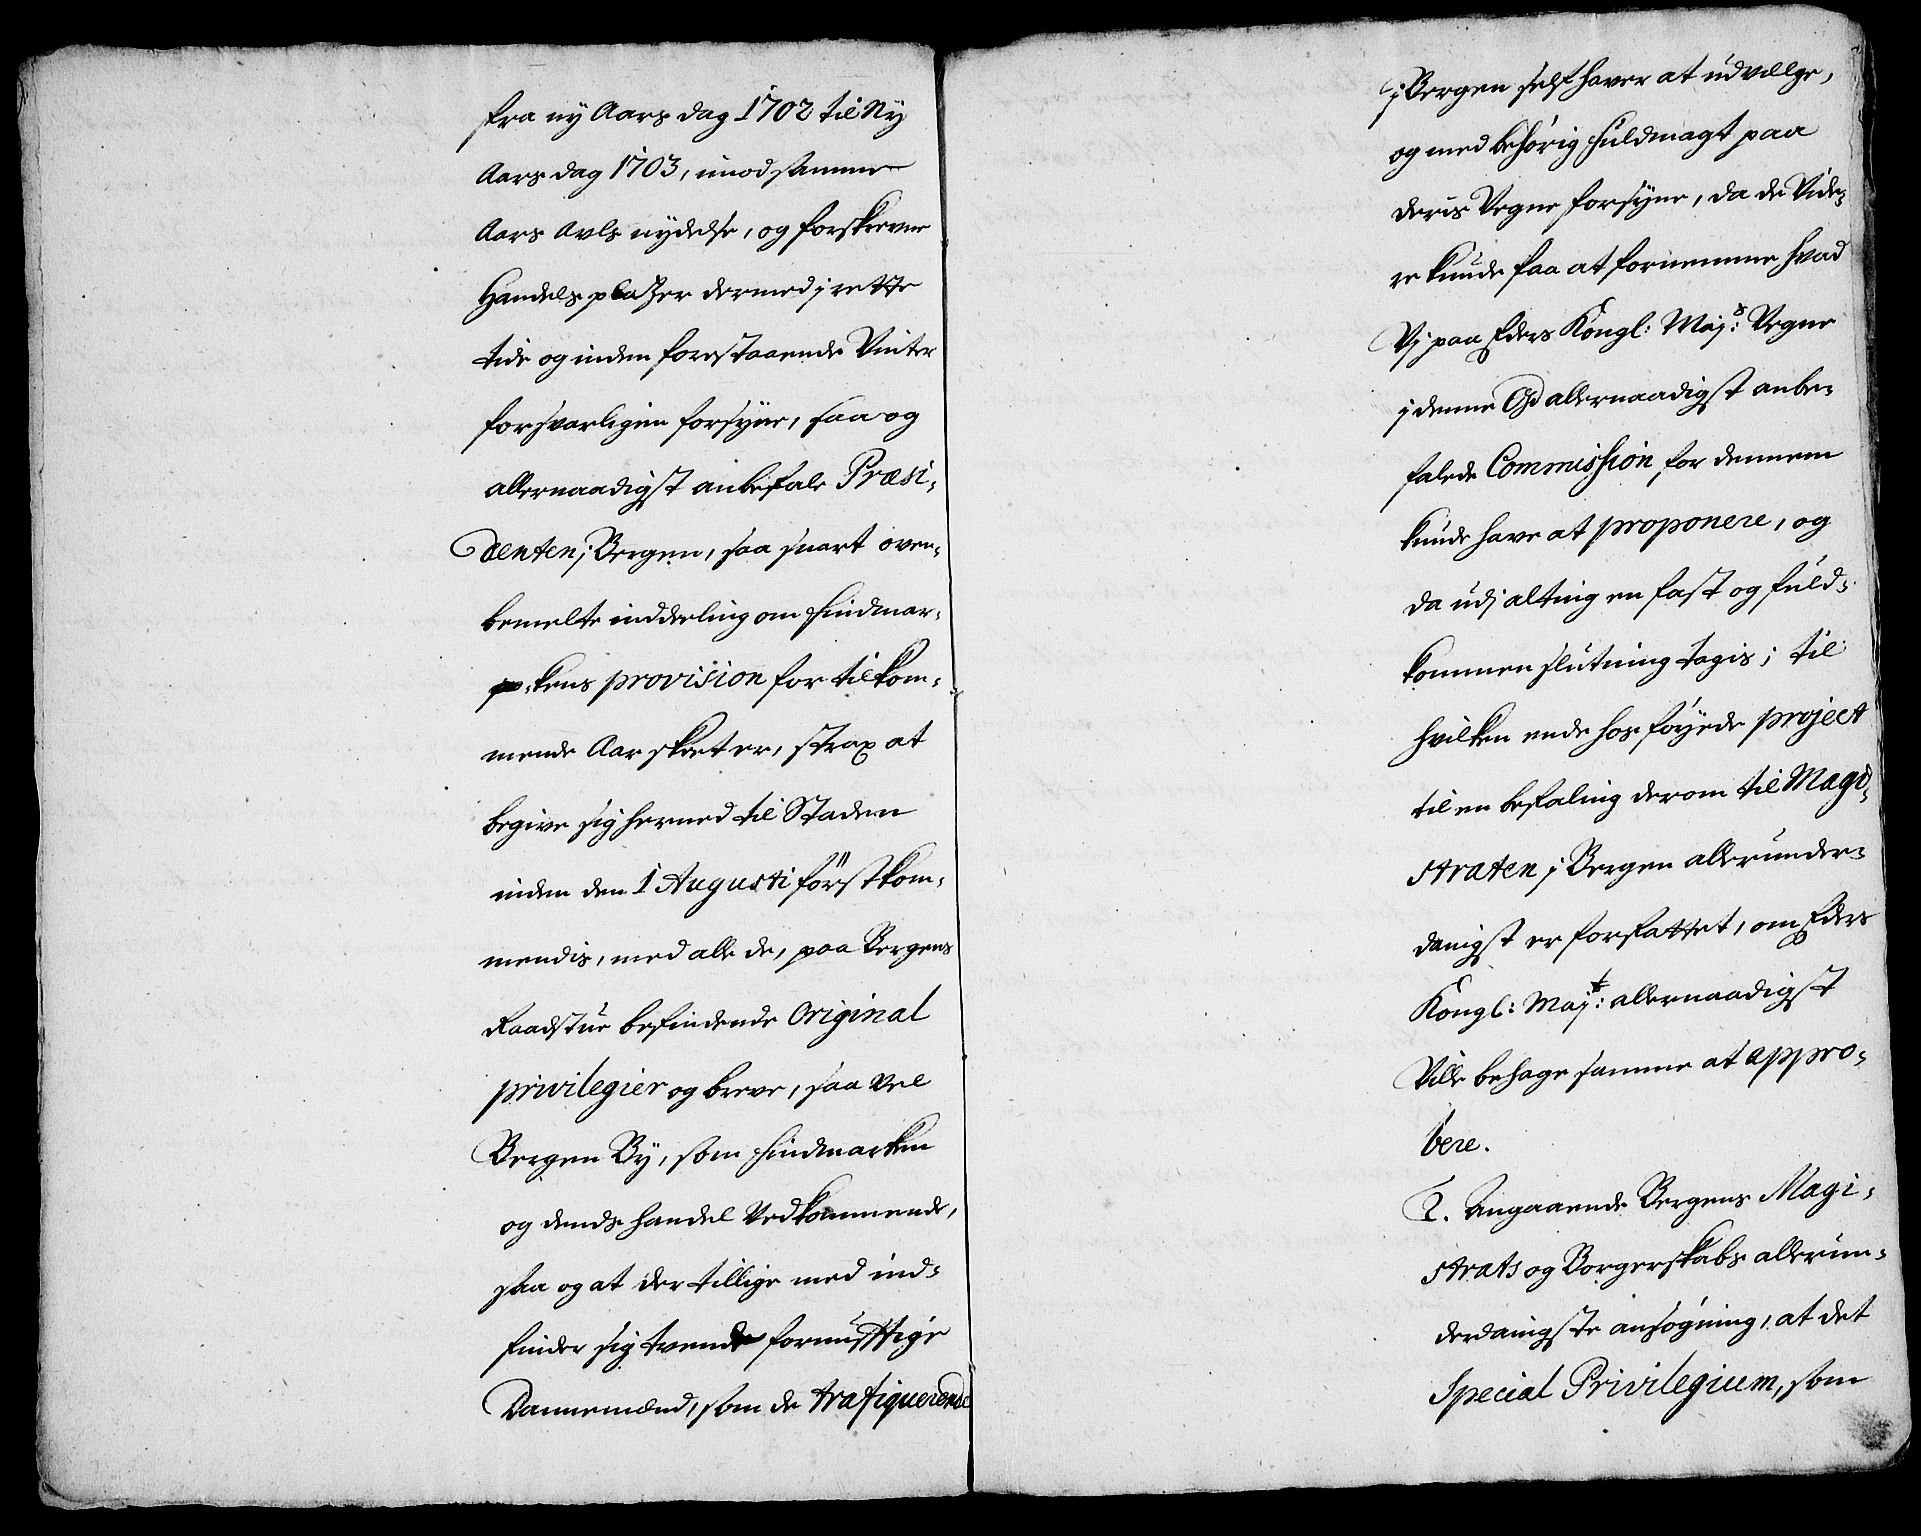 fra ny Aars dag 1702 til Ny
Aars dag 1703, imod samme
Aars Avls nydelse, og forskrevne
Handels plazer dermed i rette
tide og inden forestaaende Vinter
forsvarligen forsyne, saa og
allernaadigst anbefale Præsi-
denten i Bergen, saa snart oven-
bemelte inddeeling om Findmar-
kens provision for tilkom-
mende Aar skeet er, strax at
begive sig herned til Staden
inden den 1 Augusti förstkom-
mendis, med alle de, paa Bergens
Raadstue befindende Original
privilegier og breve, saa vel
Bergen By, som Findmarken
og dends handel Vedkommende,
saa og at der tillige med ind-
finder sig tvende fornufftige
Dannemænd, som de trafiquerende
i Bergen self haver at udvællge,
og med behörig Fuldmagt paa
deris Vegne forsyne, da de Vide-
re kunde faa at fornemme hvad
Vj paa Eders Kongl: Maj:s Vegne
i denne Os allernaadigst anbe-
falede Commission for dennem
kunde have at proponere, og
da udj alting en fast og fuld-
kommen slutning tagis; til
hvilken ende hos föyede project
til en befaling derom til Magi-
straten i Bergen allerunder-
danigst er forfattet, om Eders
Kongl: Maj:t allernaadigst
Ville behage samme at appro-
bere.
2. Angaaende Bergens Magi-
strats og Borgerskabs allerun-
derdanigste ansögning, at det
Special Privilegium, som